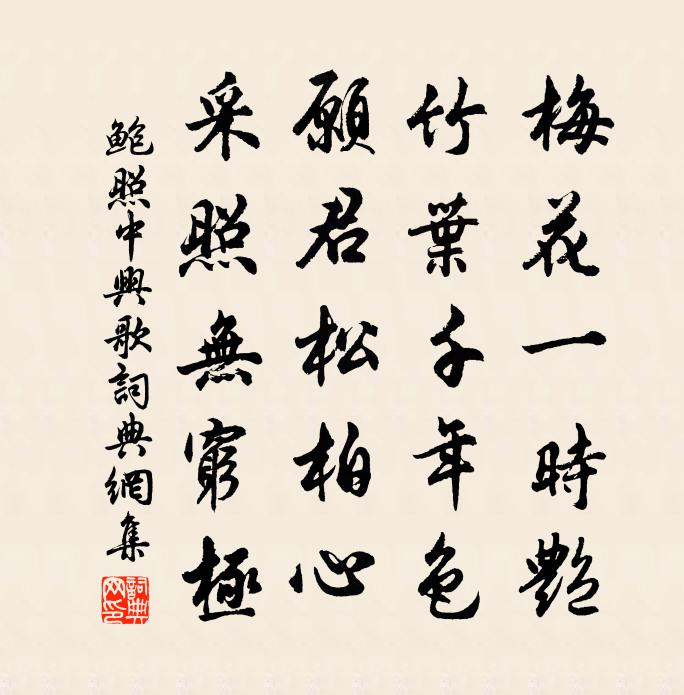 梅花一時艷
竹葉千年色
願君松柏心
采照無窮極
鮑照中興歌詞典網集
詞典網印